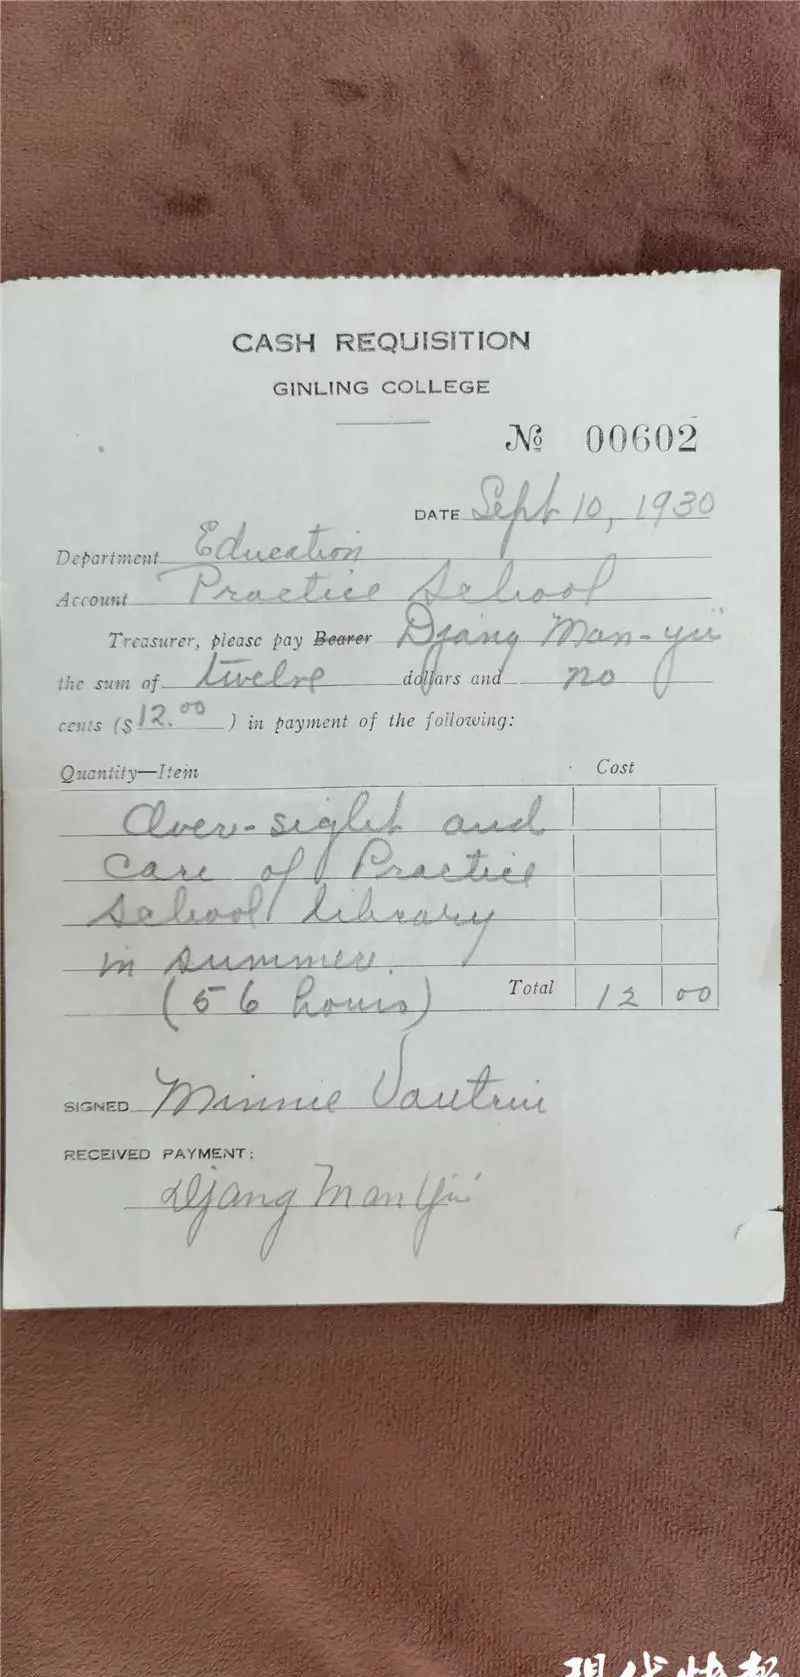 CASH REQUISITION
GINLING COLLEGE
№ 00602
DATE Sept 10, 1930
Department Education
Account Practice School
Treasurer, please pay Bearer Djang Man-yü
the sum of twelve dollars and no
cents ($12.00) in payment of the following:
Quantity—Item Cost
Over-sight and
care of Practice
School library
in summer.
(56 hours) Total 12 00
SIGNED Minnie Vautrin
RECEIVED PAYMENT:
Djang Man Yü
现代快报